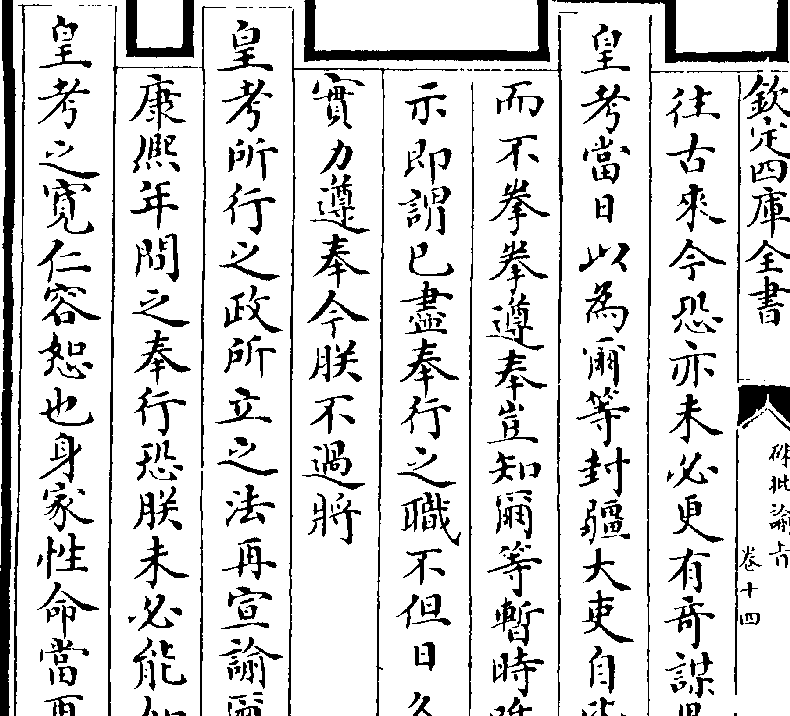 欽定四庫全書
硃批諭旨
卷十四
往古來今恐亦未必更有奇謀
皇考當日以為爾等封疆大吏自
而不拳拳遵奉豈知爾等暫時
示即謂已盡奉行之職不但日久
實力遵奉今朕不過將
皇考所行之政所立之法再宣諭爾
康熈年間之奉行恐朕未必能如
皇考之寬仁容恕也身家性命當再